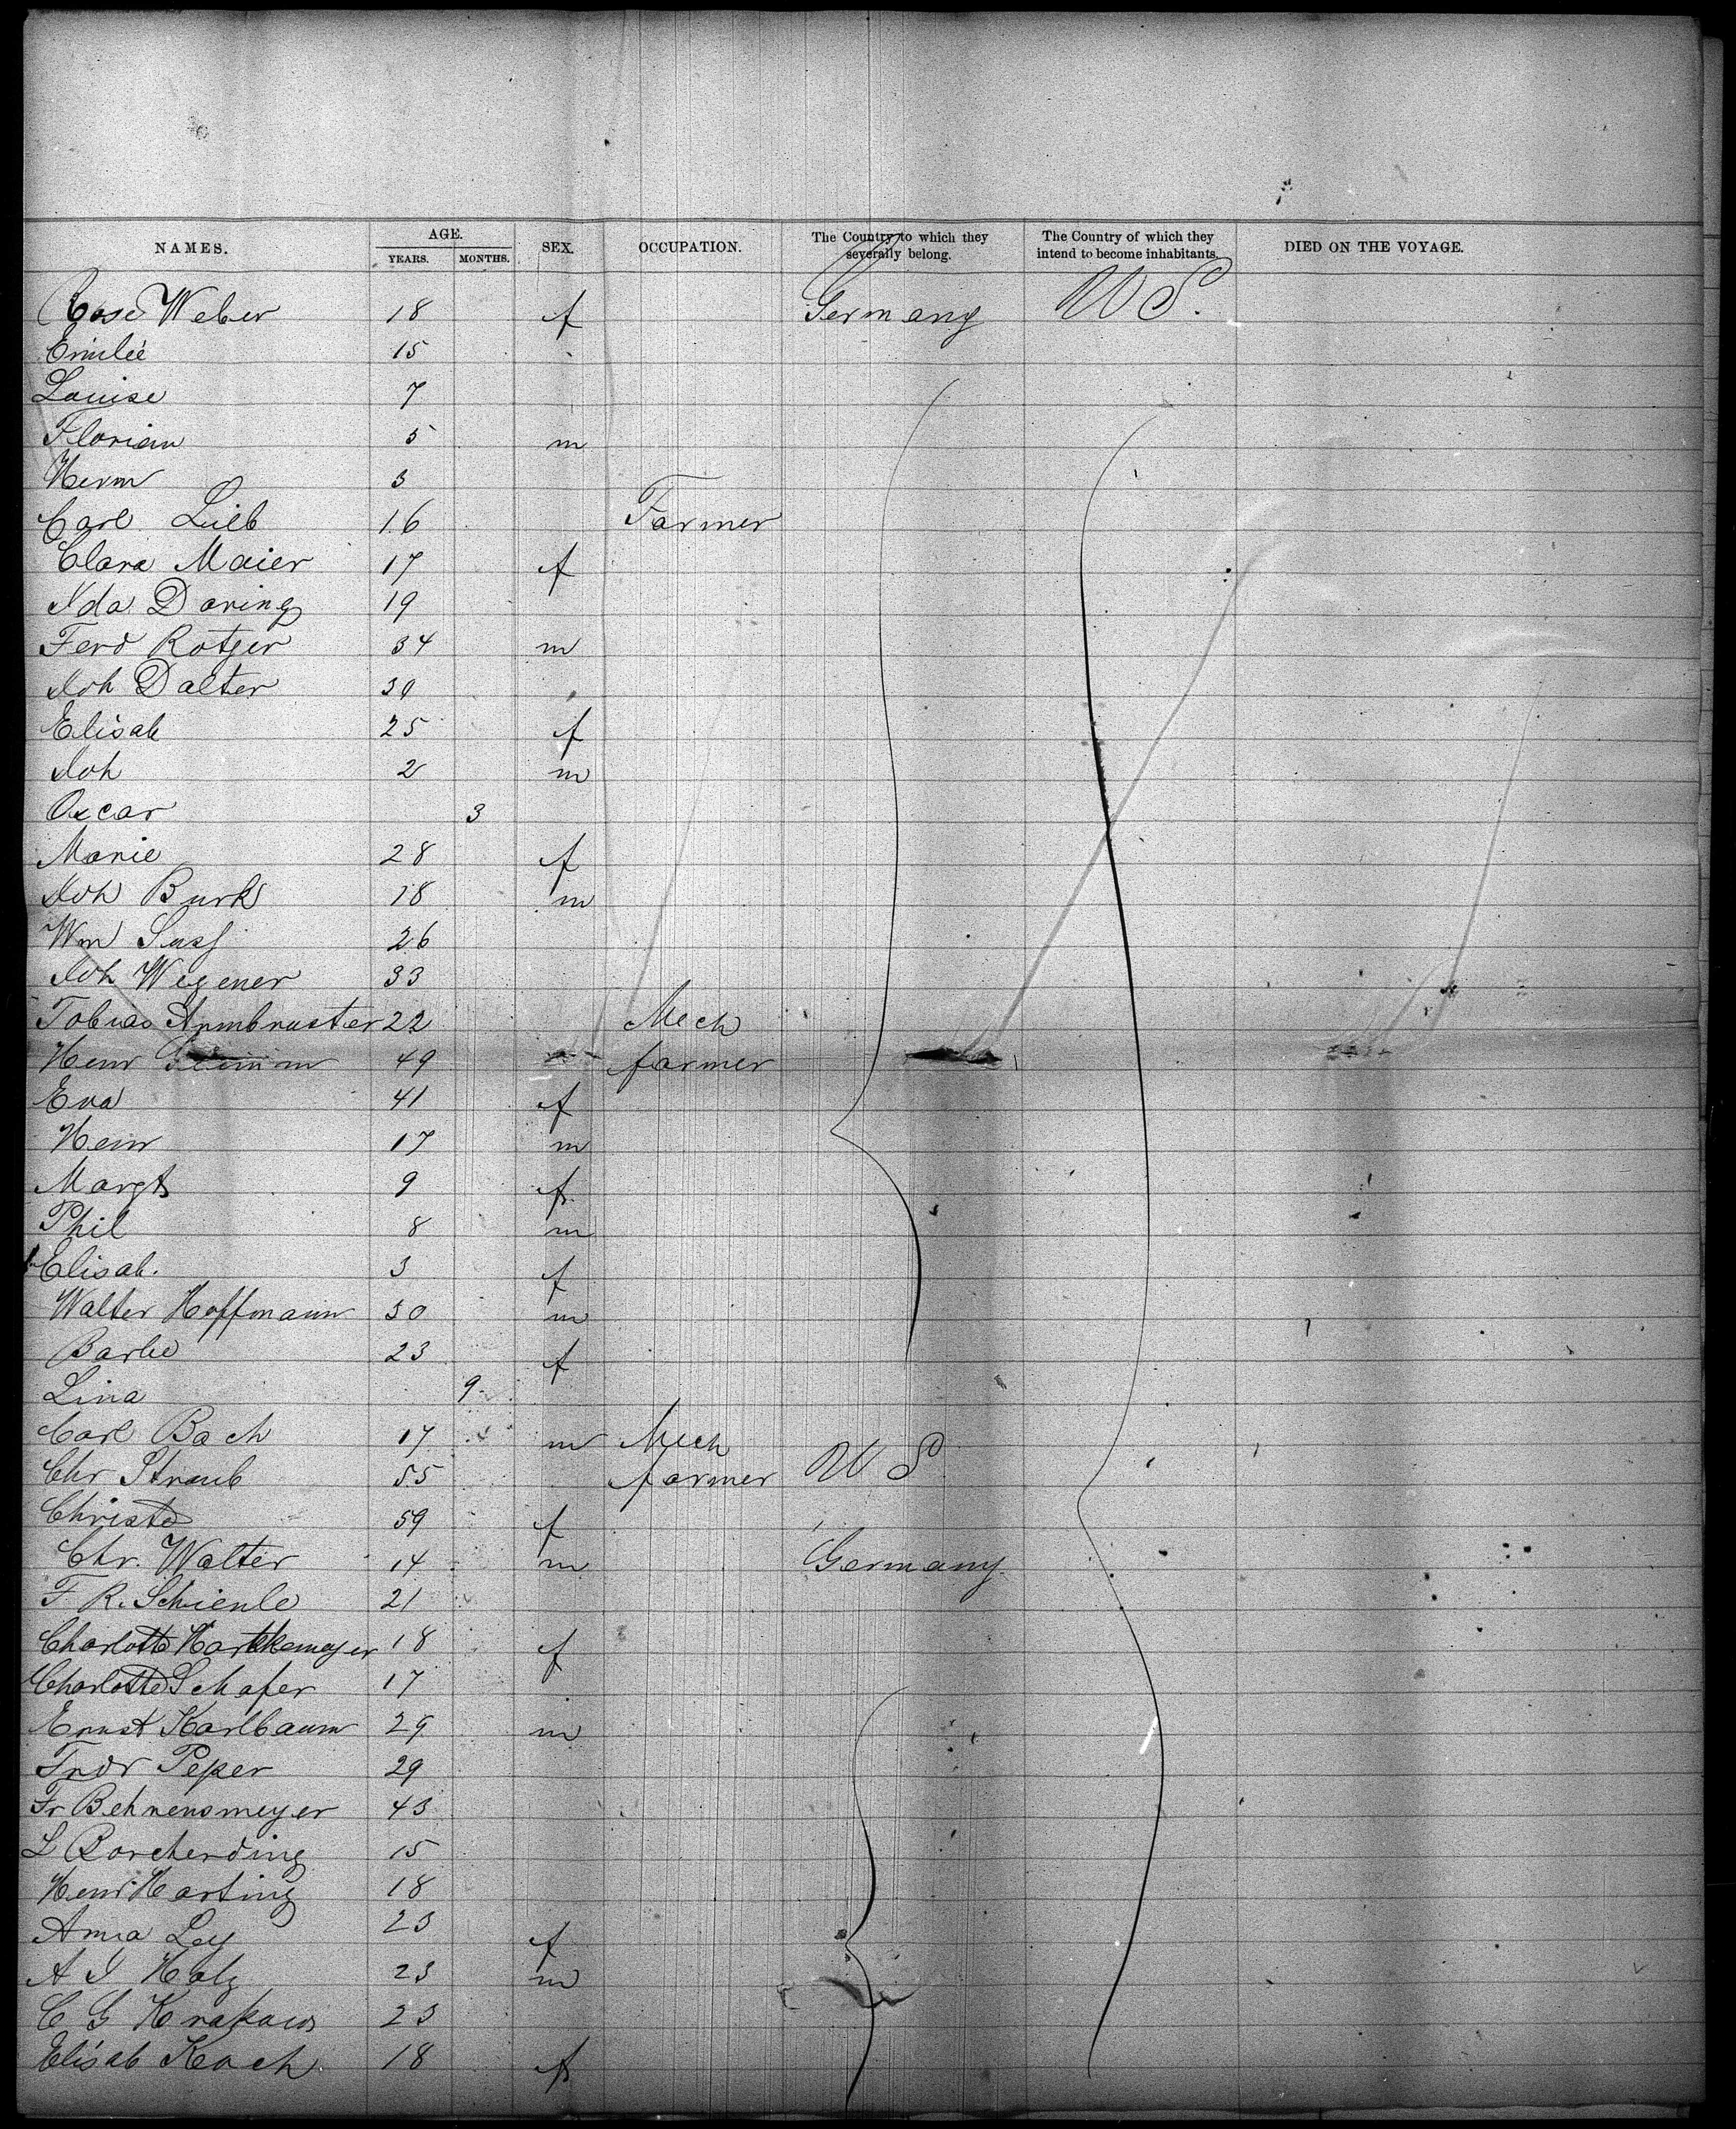 NAMES. AGE. SEX. OCCUPATION. The Country to which they severally belong. The Country of which they intend to become inhabitants. DIED ON THE VOYAGE.
YEARS. MONTHS.
Rose Weber 18 f Germany U S.
Emilie 15
Louise 7
Florian 5 m
Herm 3
Carl Lieb 16 Farmer
Clara Maier 17 f
Ida Doring 19
Ferd Rotger 34 m
Joh Dalter 30
Elisab 25 f
Joh 2 m
Oscar 3
Marie 28 f
Joh Burk 18 m
Wm 26
Joh Wegener 33
Tobias Armbruster 22 Mech
Henr 49 farmer
Eva 41 f
Henr 17 m
Margt 9 f
Phil 8 m
Elisab. 3 f
Walter Hoffmann 30 m
Barbe 23 f
Lina 9
Carl Bach 17 m Mech
Chr Straub 55 farmer U S
Christe 59 f
Chr. Walter 14 m Germany
F R. Schienle 21
Charlotte Hartkemeyer 18 f
Charlotte Schafer 17
Ernst Karlbaum 29 m
Frdr Peper 29
Fr Behrensmeyer 43
L Borcherding 15
Henr Harting 18
Anna Ley 23 f
A J Holz 23 m
C G Krakow 23
Elisab Koch 18 f